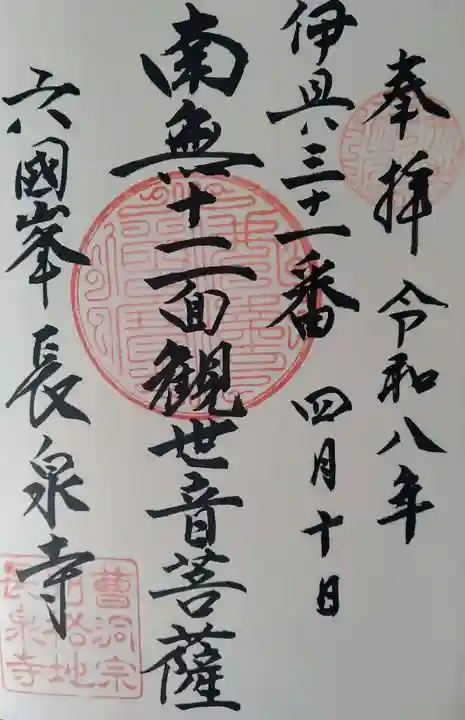 奉拝 令和八年
伊具三十一番 四月十日
南無十一面観世音菩薩
六國峯 長泉寺
曹洞宗
別格地
長泉寺